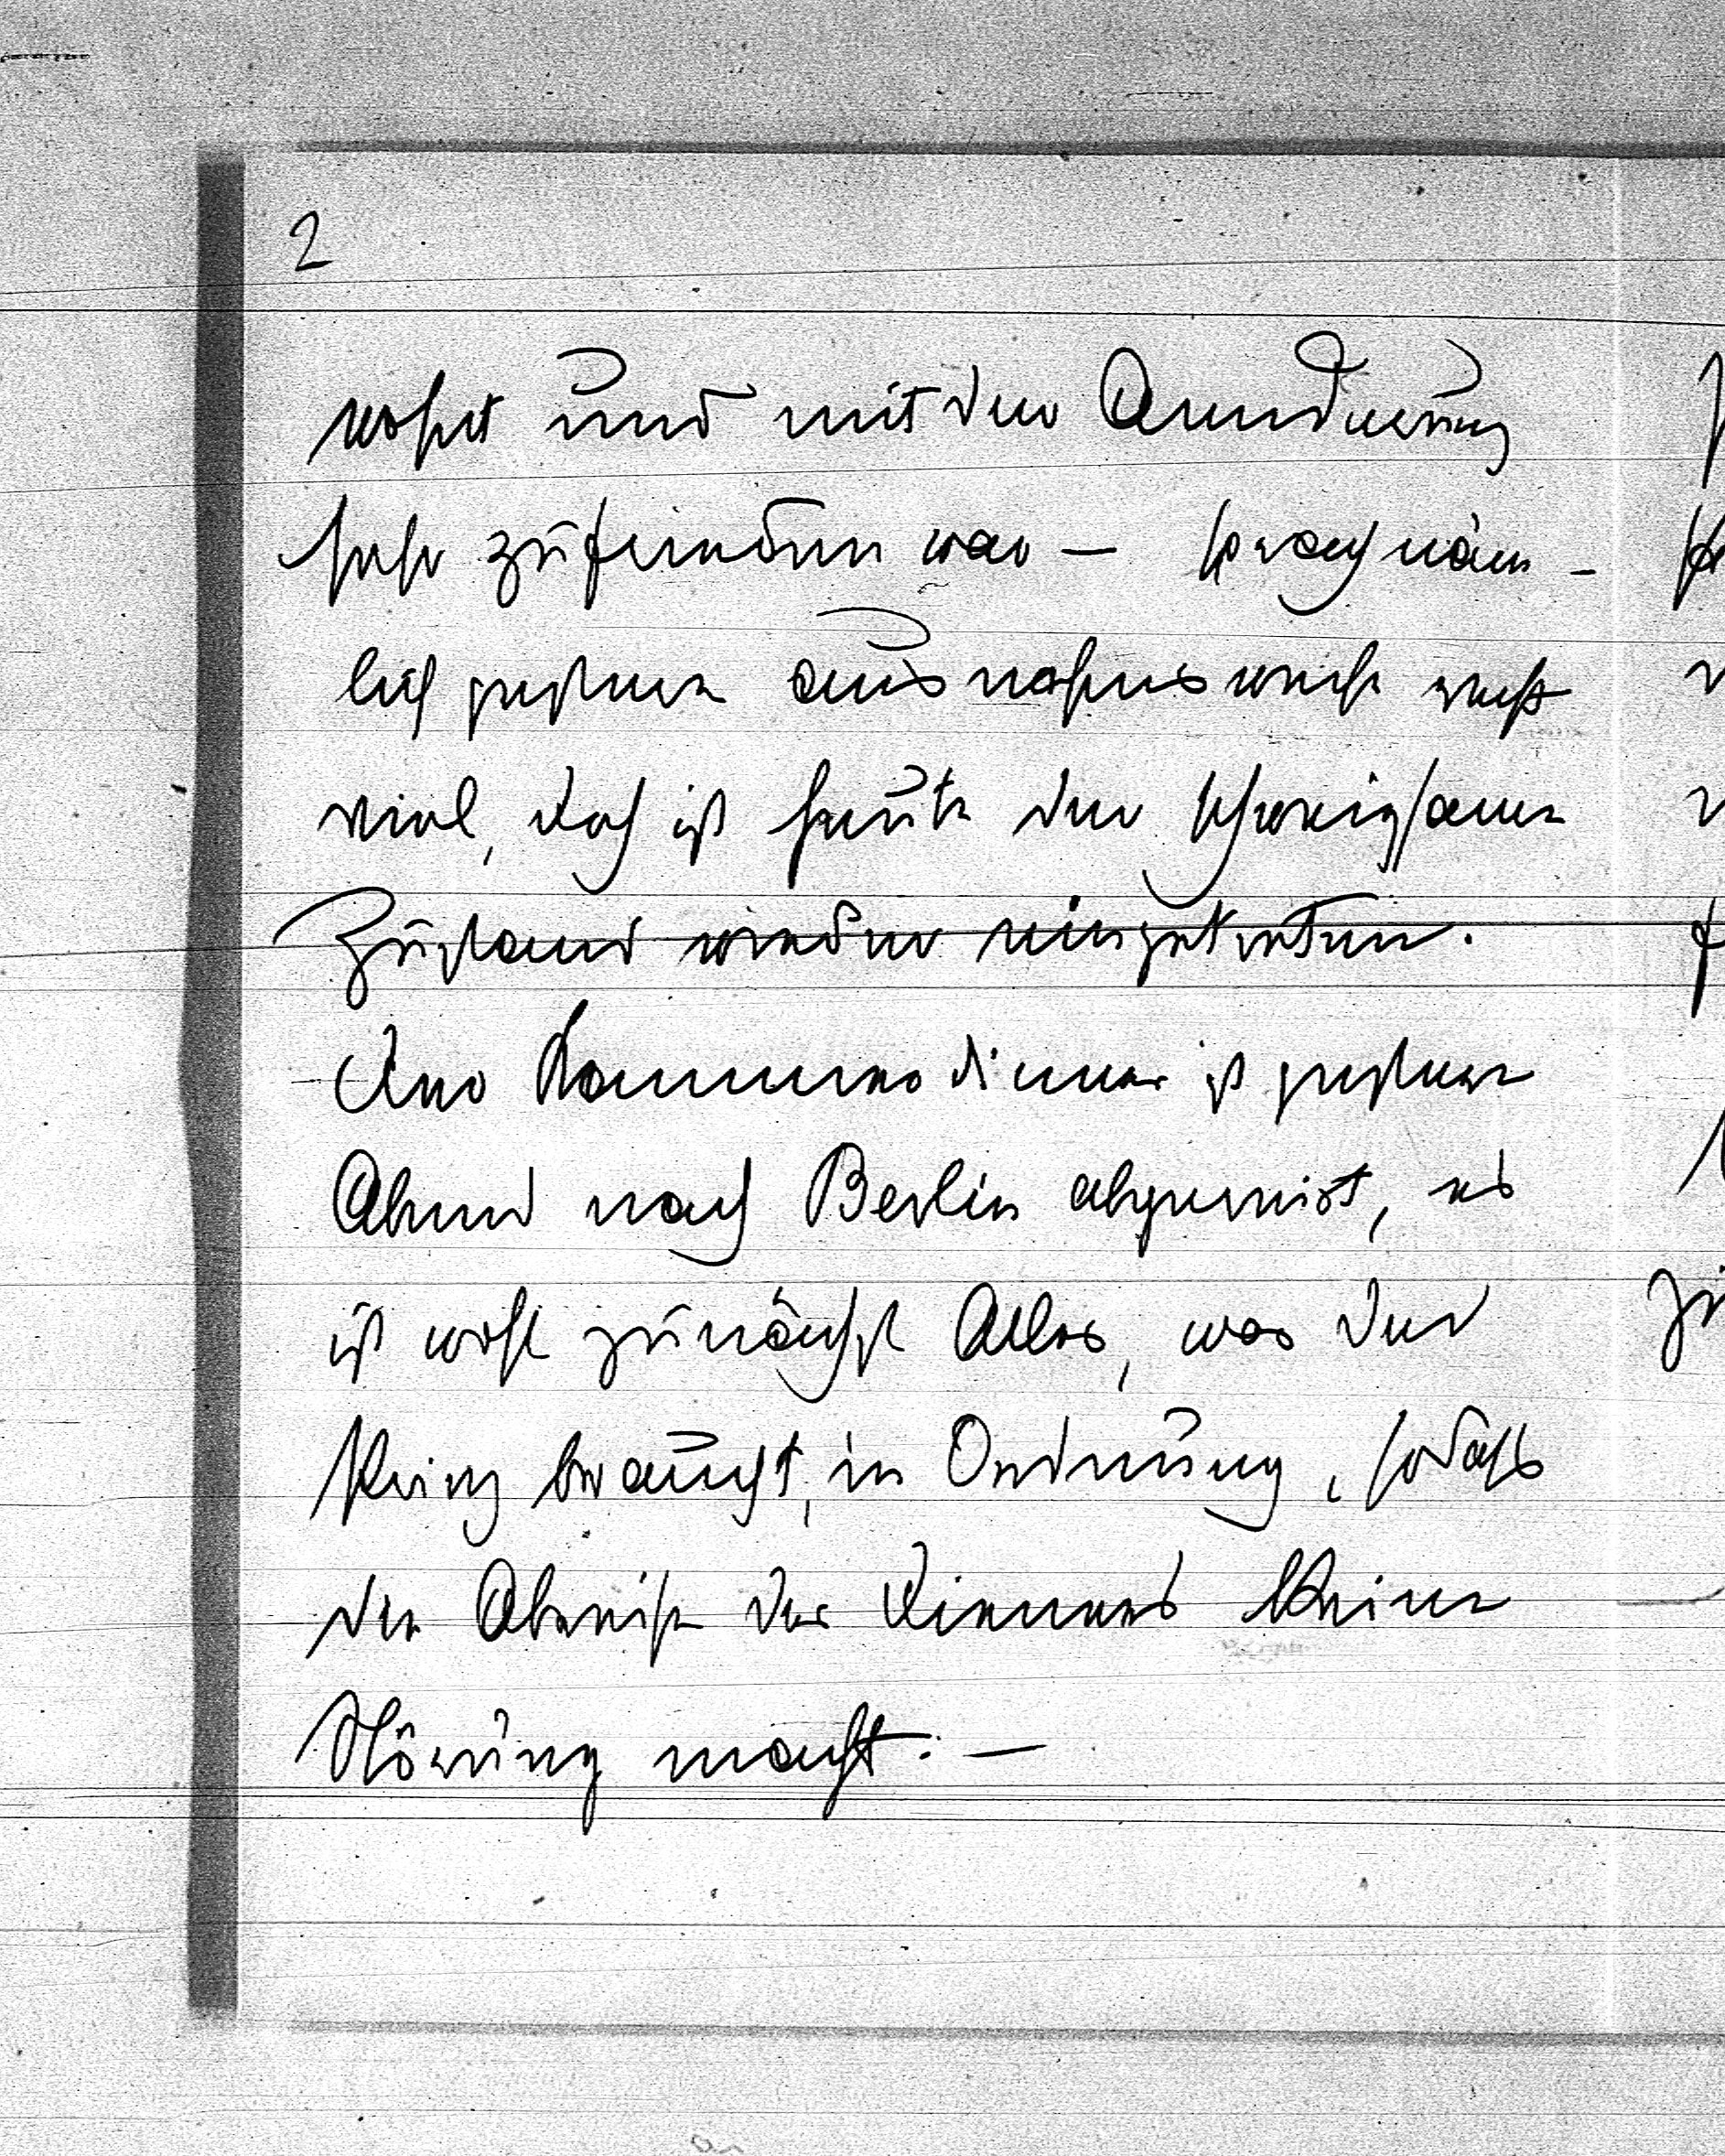 2
wohnt und mit der Aenderung
sehr zufrieden war — sprach näm-
lich gestern ausnahmsweise recht
viel, doch ist heute der schweigsame
Zustand wieder eingetreten.
Der Kammerdiener ist gestern
Abend nach Berlin abgereist, es
ist wohl zunächst Alles, was der
Prinz braucht, in Ordnung, sodaß
die Abreise des Dieners keine
Störung macht. —